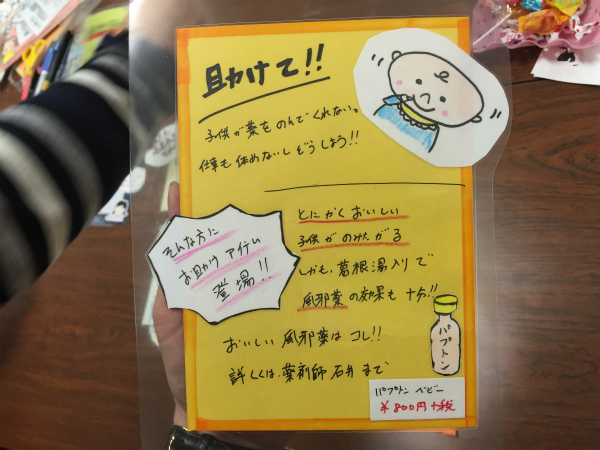 助けて!!
子供が薬をのんでくれない。
仕事も休めないしどうしよう!!
そんな方に
お助けアイテム
登場!!
とにかくおいしい
子供がのみたがる
しかも、葛根湯入りで
風邪薬の効果も十分!!
おいしい風邪薬はコレ!!
詳しくは、薬剤師石井まで
パプトン
パプトン ベビー
¥800円+税